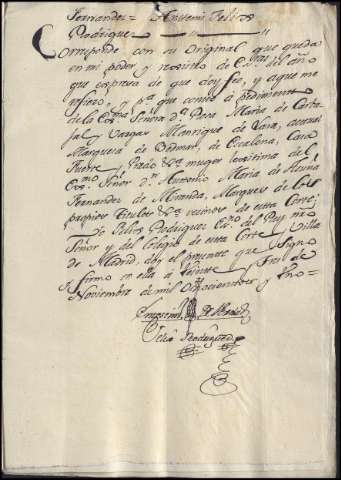 Fernandez = Antemi Felix
Rodriguez = =
Corresponde con su Original que queda
en mi poder y rexistro de Esc.ras del año
que expresa de que doy feé, y a que me
refiero, y p.a que conste à pedimento
de la Ex.ma Señora D.a Rosa Maria de Carba
jal y Vargas Manrique de Lara, actual
Marquesa de de
Fuerte y muger lexitima del
Ex.mo Señor D.n Antonio Maria de
Fernandez de Miranda, Marques de los
propios titulos &.a vecinos de esta Corte;
Yo Felix Rodriguez Es.no del Rey nro
Señor y del Colegio de esta Corte y Villa
de Madrid, doy el presente que signo
y firmo en ella à veinte y tres de
Noviembre de mil Ochocientos y Uno =
de Verdad
Felix Rodriguez